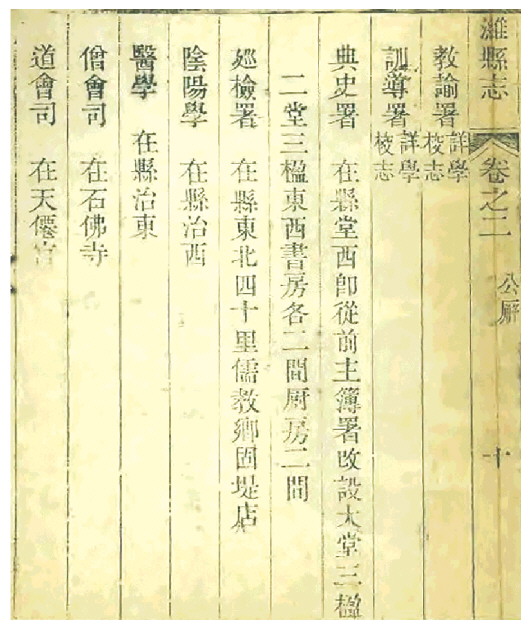 濰縣志 卷之二 公廨 十
教諭署 詳學校志
訓導署 詳學校志
典史署 在縣堂西卽從前主簿署改設大堂三楹
二堂三楹東西書房各二間厨房二間
廵檢署 在縣東北四十里儒教鄉固堤店
陰陽學 在縣治西
醫學 在縣治東
僧會司 在石佛寺
道會司 在天僊宫